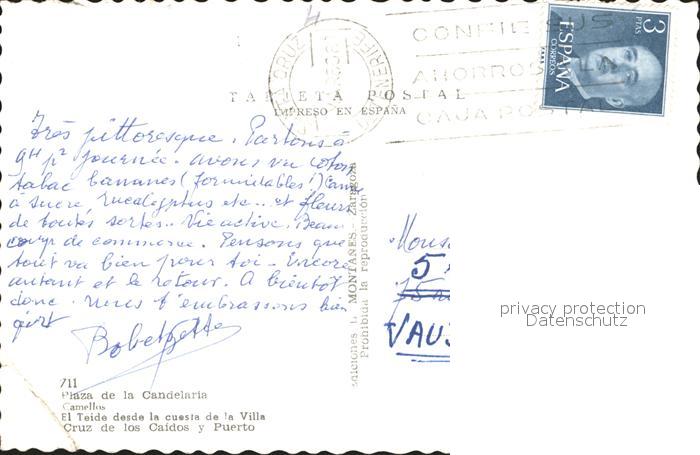 CRUZ
TENERIFE
CONFIE SUS
AHORROS
CAJA POSTAL
3
PTAS
ESPAÑA
CORREOS
TARJETA POSTAL
IMPRESO EN ESPAÑA
Très pittoresque. Partons à
9H pr journée. avons vu coton
tabac bananes (formidables!) canne
à sucre Eucalyptus etc... et fleurs
de toutes sortes.. Vie active. Beau
coup de commerce. Pensons que
tout va bien pour toi. Encore
autant et le retour. A bientôt
donc. nous t'embrassons bien
fort
711
Plaza de la Candelaria
Camellos
El Teide desde la cuesta de la Villa
Cruz de los Caídos y Puerto
ediciones L. MONTAÑES.- Zaragoza
Prohibida la reproducción
Mons
5
VAU
privacy protection
Datenschutz